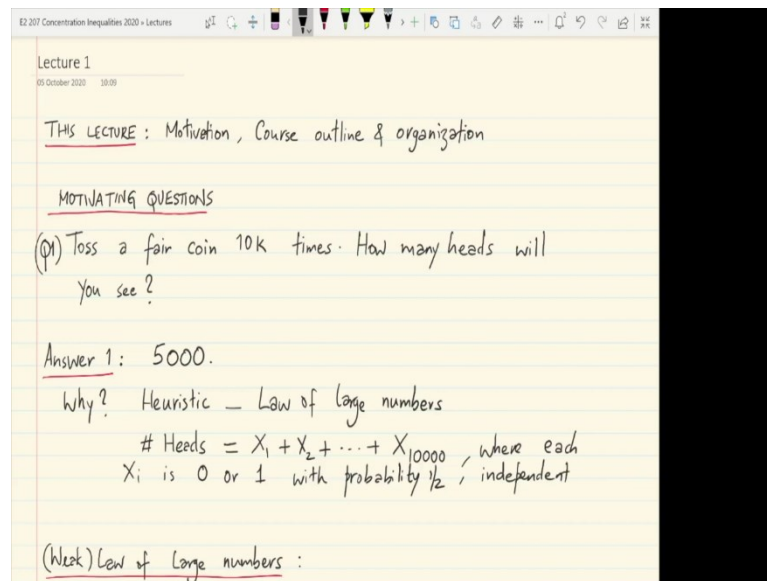 E2 207 Concentration Inequalities 2020 » Lectures
Lecture 1
05 October 2020 10:09
THIS LECTURE : Motivation, Course outline & organization
MOTIVATING QUESTIONS
(Q1) Toss a fair coin 10K times. How many heads will
you see?
Answer 1: 5000.
Why? Heuristic – Law of large numbers
# Heads = X₁ + X₂ + ⋯ + X₁₀₀₀₀, where each
Xᵢ is 0 or 1 with probability ½, independent
(Weak) Law of Large numbers :